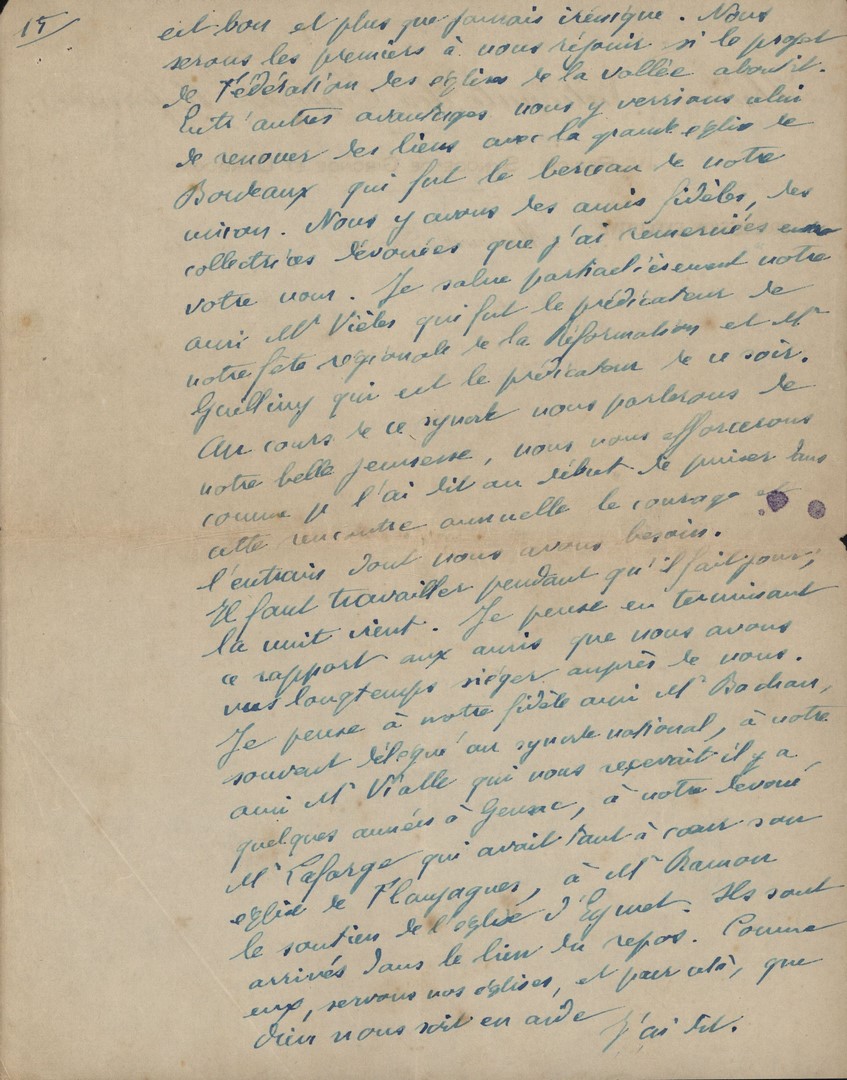 15
est bon et plus que jamais irénique. Nous
serons les premiers à nous réjouir si le projet
de Fédération des eglises de la vallée aboutit.
Entr'autres avantages nous y verrions celui
de renouer des liens avec la grande eglise de
Bordeaux qui fut le berceau de notre
union. Nous y avons des amis fidèles, des
collectrices dévouées que j'ai remerciées en
votre nom. Je salue particulièrement notre
ami Mr Vièles qui fut le prédicateur de
notre fête régionale de la Réformation et Mr
qui est le prédicateur de ce soir.
Au cours de ce synode nous parlerons de
notre belle jeunesse, nous nous efforcerons
comme je l'ai dit au début de puiser dans
cette rencontre annuelle le courage et
l'entrain dont nous avons besoin.
Il faut travailler pendant qu'il fait jour;
la nuit vient. Je pense en terminant
ce rapport aux amis que nous avons
vus longtemps siéger auprès de nous.
Je pense à notre fidèle ami Mr
souvent délégué au synode national, à notre
ami Mr Vialle qui nous recevait il y a
quelques années à Gensac, à notre dévoué
Mr Laforge qui avait tant à cœur son
eglise de Flaujagues, à Mr Ramon
le soutien de l'eglise d'Eymet. Ils sont
arrivés dans le lieu du repos. Comme
eux, servons nos eglises, et pour cela, que
Dieu nous soit en aide
J'ai dit.